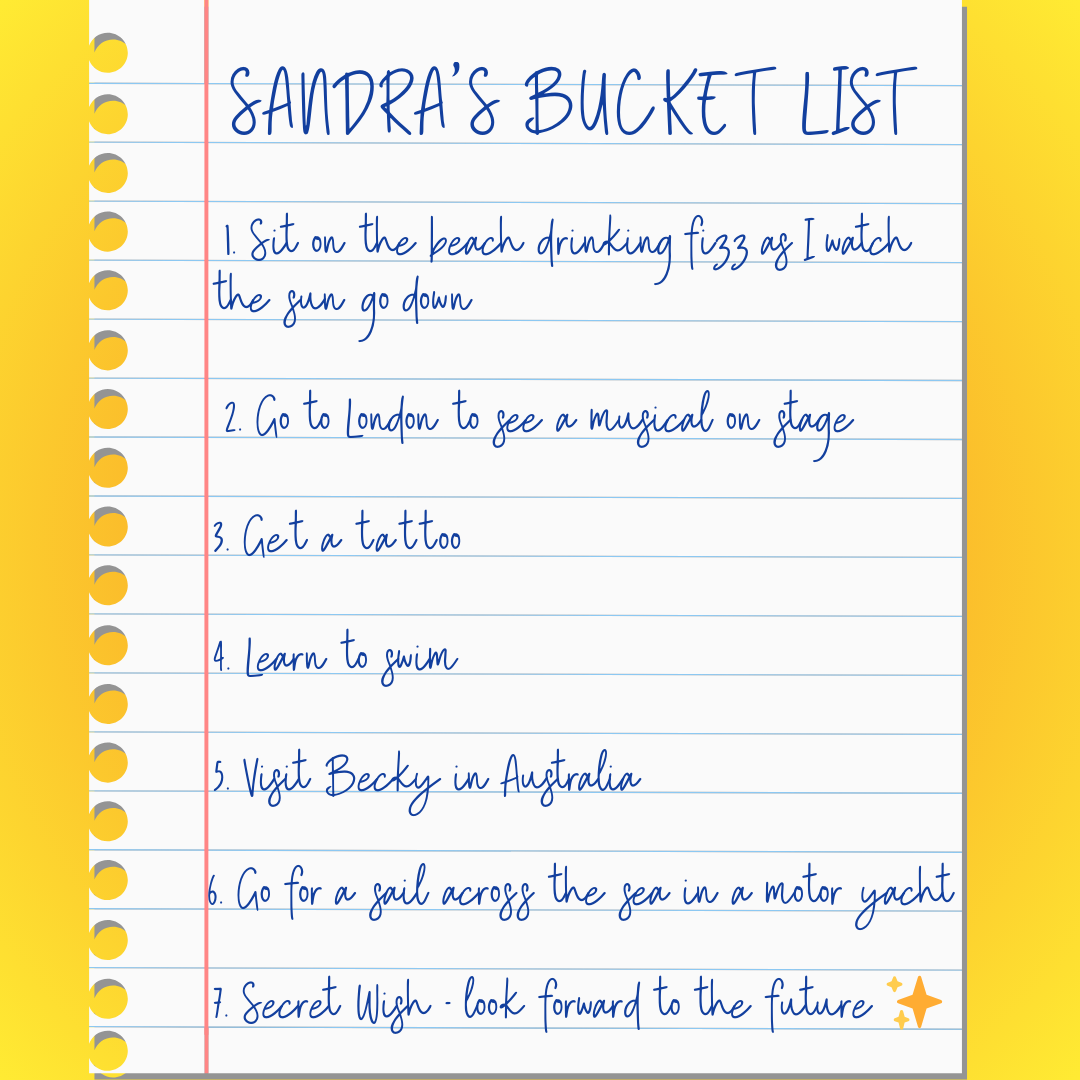 SANDRA'S BUCKET LIST
1. Sit on the beach drinking fizz as I watch
the sun go down
2. Go to London to see a musical on stage
3. Get a tattoo
4. Learn to swim
5. Visit Becky in Australia
6. Go for a sail across the sea in a motor yacht
7. Secret Wish - look forward to the future ✨